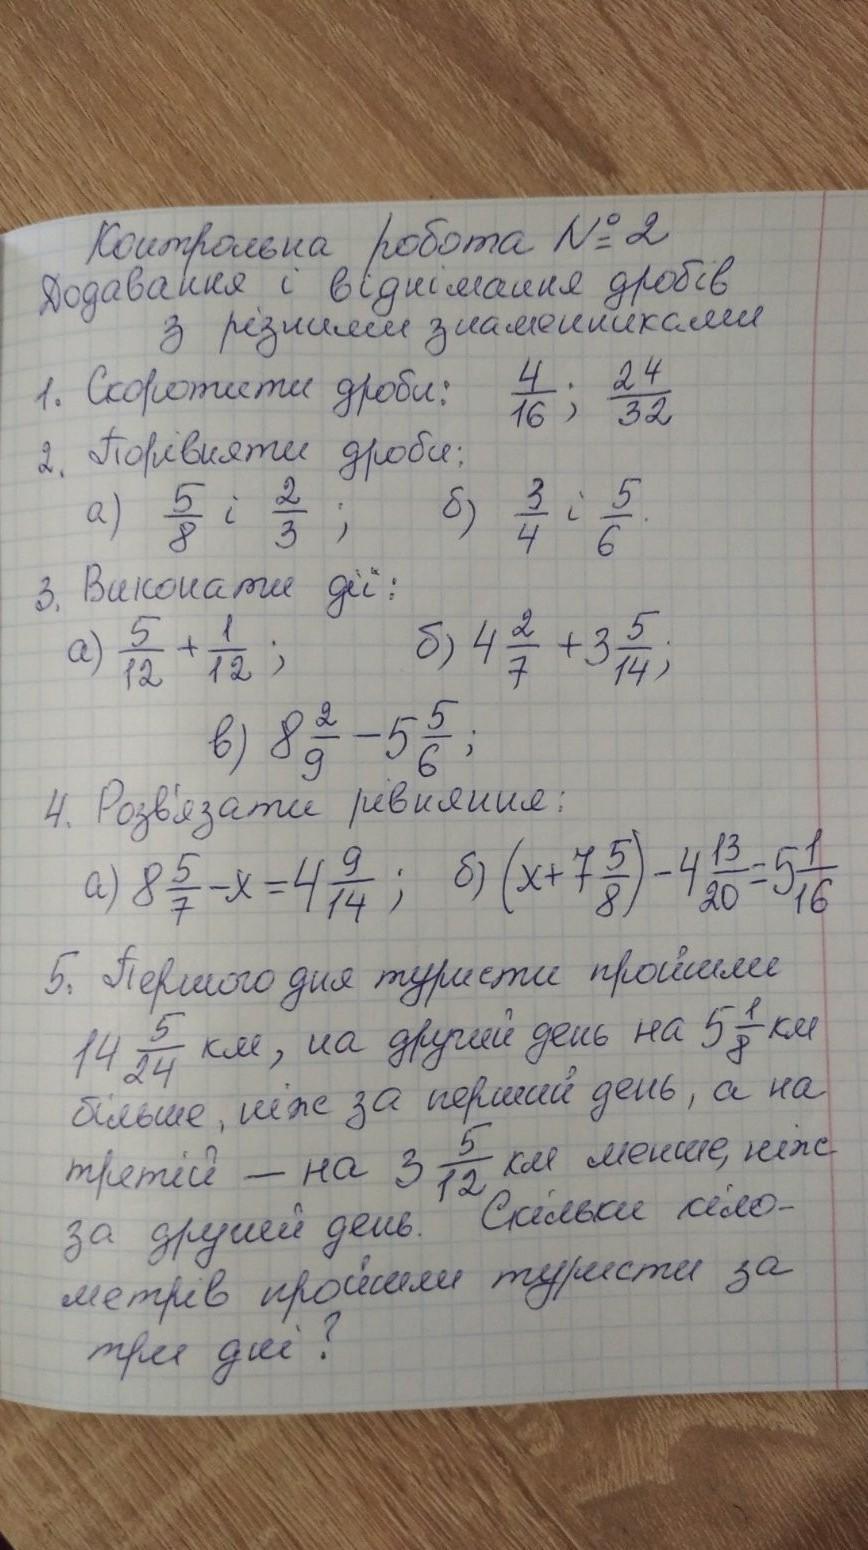 Контрольна робота № 2
Додавання і віднімання дробів
з різними знаменниками
1. Скоротити дроби: 4/16; 24/32
2. Порівняти дроби:
а) 5/8 і 2/3; б) 3/4 і 5/6.
3. Виконати дії:
а) 5/12 + 1/12; б) 4 2/7 + 3 5/14;
в) 8 2/9 - 5 5/6;
4. Розв'язати рівняння:
а) 8 5/7 - x = 4 9/14; б) (x + 7 5/8) - 4 13/20 = 5 1/16
5. Першого дня туристи пройшли
14 5/24 км, на другий день на 5 1/8 км
більше, ніж за перший день, а на
третій — на 3 5/12 км менше, ніж
за другий день. Скільки кіло-
метрів пройшли туристи за
три дні?